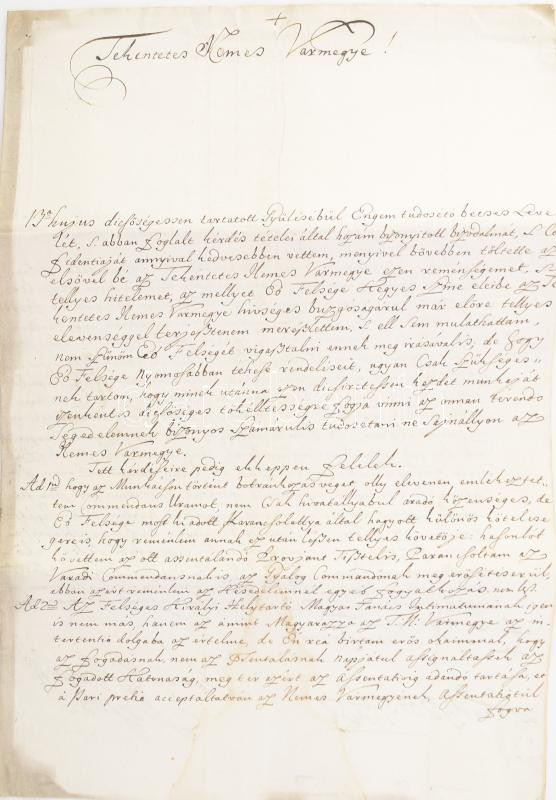 +
Tekentetes Nemes Varmegye!
13a hujus dicsösségessen tartatott Gyülésebül Engem tudosetó betses Leve
let, s abban foglalt kérdés tételei által hozám bizonyitott bizodalmat, s Co
fidentiaját annyival kedvesebben vettem, menyivel bövebben töltötte az
elsövel bé az Tekentetes Nemes Varmegye ezen reménségemet, s
tellyes hitelemet, az mellyet Eö Felsége Hegyes Szine eleibe az Te
kentetes Nemes Varmegye hivséges buzgóságárul már elöre tellyes
elevenséggel terjesztenem merészlettem, s ell sem mulathattam,
nem szünöm Eö Felségét vigasztalni ennek meg irásával is, de hogy
Eö Felsége nyomosabban tehesse rendeléseit, ugyan Csak szükséges
nek tartom, hogy minek utánna ezen dicsiretessen kezdet munkáját
igenkents dicsöséges tökélletességre fogja vinni az onnan teréndö
Segedelemnek bizonyos számárulis tudositani ne sajnállyon az
Nemes Varmegye.
Tett kérdéseire pedig ekkeppen felelek.
Ad 1um hogy az Munkácson történt botránkozásvéget olly elevenen emlékeztet
tem Commendans Uramot, nem Csak hivatallyabul áradó közenséges, de
Eö Felsége most ki adott Parancsolattya által hagyott különös kötelese
gereis, hogy reménlem annak ez után leszen tellyes követöje: hasonlót
követtem az ott assentalandó Provjant Tisztelis, Parancsoltam az
Váradi Commendansnakis, az Gyalog Commandónak meg erösétésérül,
abban azért reménlem az Késedelemnel egyéb fogyatkozás nem lész.
Ad 2um Az Felséges Királyi Helytartó Magyar Tanács Intimatumának igen
is nem más, hanem az amint Magyarázza az T. N. Varmegye az in
tertentió dolgaba az értelme, de Én reá birtam erös okaimmal, hogy
az fogadásnak, nem az Assentalásnak napjátul assignaltassék az
fogadott Katonaság, meg tér azért az Assentatióig adandó tartása, et
á Pari pretio acceptaltatván az Nemes Varmegyének, Assentatiótul
fogva